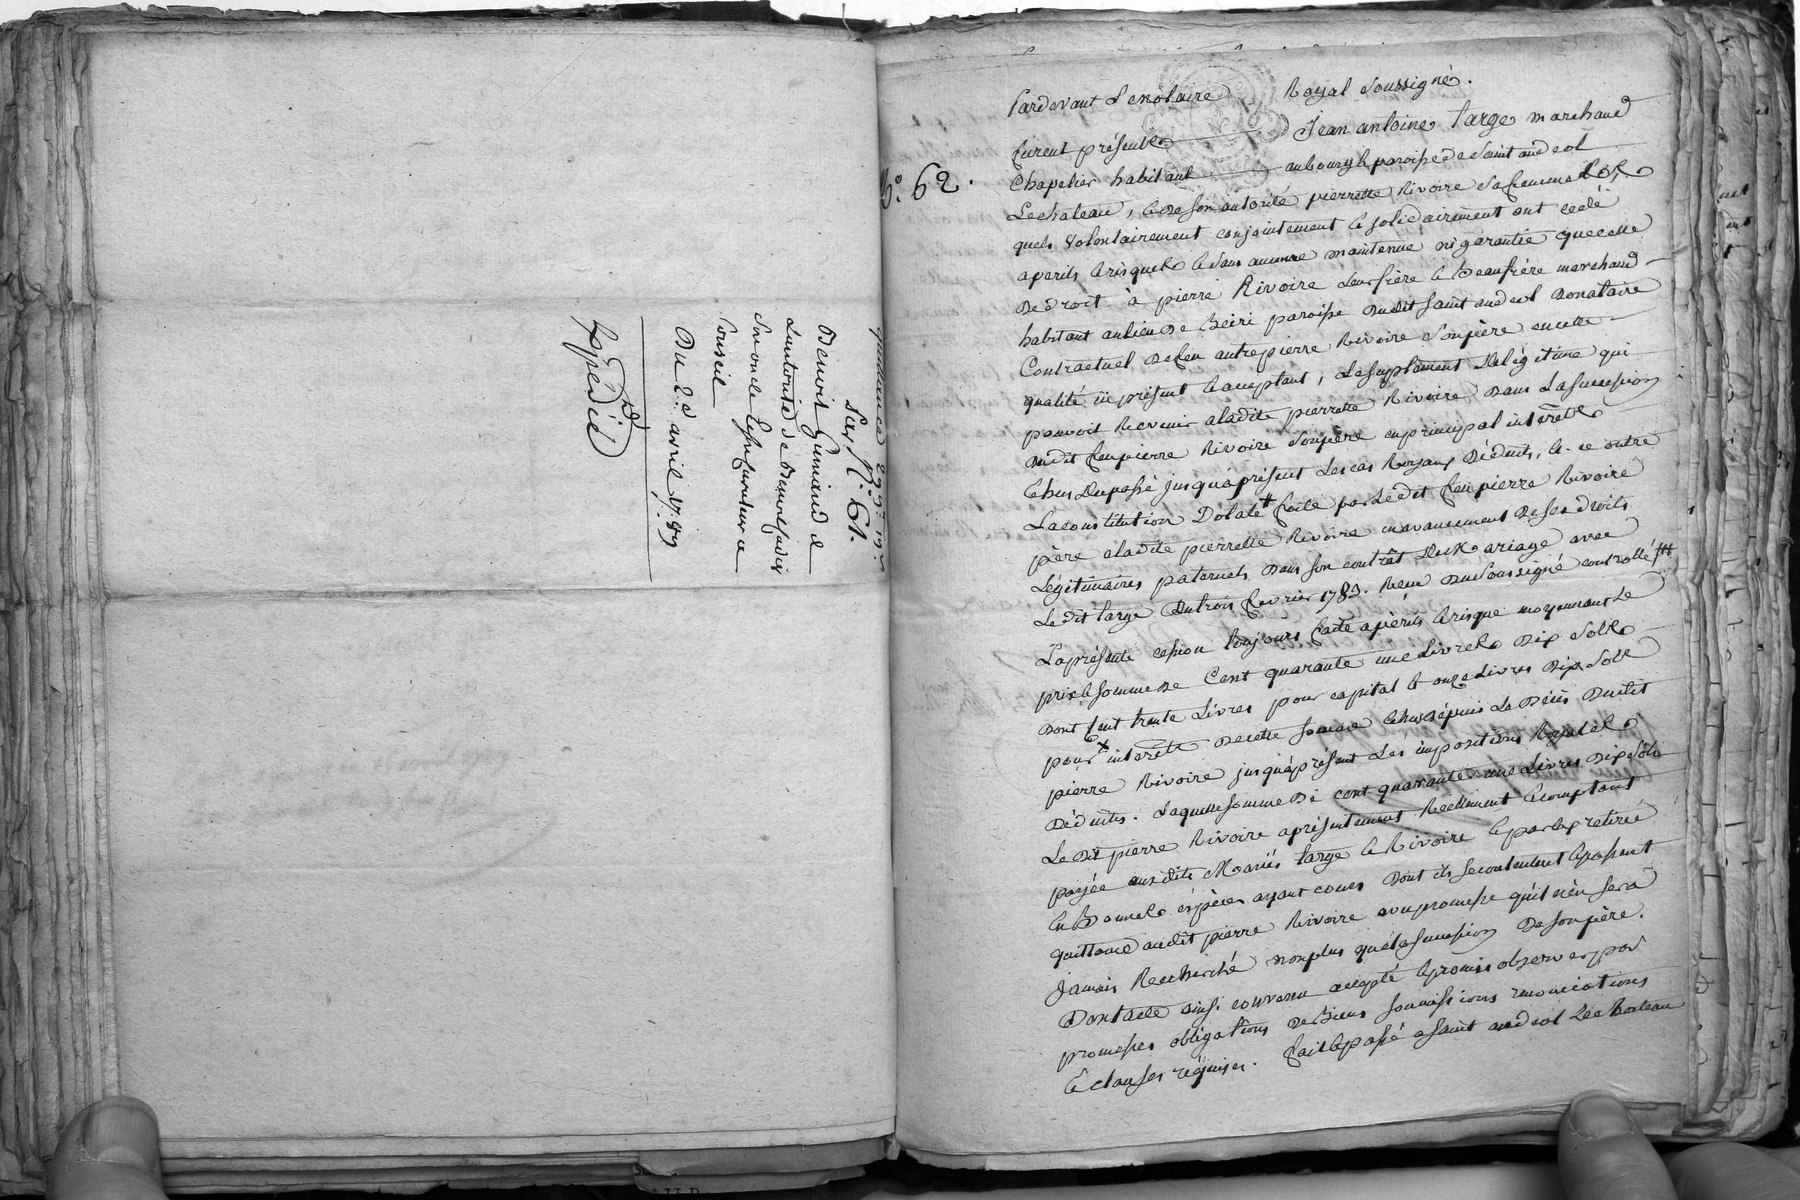 quittance
Ser N.° 61.
Benoit Guinand de
Lautorité de
Son oncle
Conseil
Du 2.d avril 1789
Expédié
N.° 62.
Pardevant Le notaire Royal Soussigné.
furent présents Jean antoine large marchand
Chapelier habitant au bourg & paroisse de Saint andeol
Lechateau, & de son autorité pierrette Rivoire Sa femme Les
quels volontairement conjointement & solidairement ont cédé
a perils & risques & sans aucune maintenue ni garantie que celle
de droit à pierre Rivoire leur frère & Beaufrère marchand
habitant au lieu de paroisse dudit Saint andeol donataire
Contractuel de feu autre pierre Rivoire Son père en cette
qualité ici présent & acceptant, Le suplement de légitime qui
pouvoit Revenir aladite pierrette Rivoire dans La succession
dudit feu pierre Rivoire Son père en principal intérêts
échus du passé jusqu'à présent Les cas Royaux déduits, & ce outre
La constitution Dotale # faite par Ledit feu pierre Rivoire
père aladite pierrette Rivoire en avancement de ses droits
Légitimaires paternels dans son contrât de Mariage avec
Le dit large du trois fevrier 1783. Reçu du Soussigné controllé
La présente cession toujours faite a périls & risque moyennant Le
prix & somme de Cent quarante une Livres Dix Sols
Dont Cent trente Livres pour capital & onze Livres Dix Sols
pour intérêts de cette somme échus depuis Le Décès Dudit
pierre Rivoire jusqu'à présent Les impositions Royales
déduites. Laquelle somme de cent quarante une Livres Dix Sols
Le dit pierre Rivoire a présentement Réellement & comptant
payée auxdits Mariés large & Rivoire & par eux retirée
en Bonnes éspèces ayant cours dont ils se contentent & passent
quittance audit pierre Rivoire avec promesse qu'il n'en sera
jamais Recherché non plus que la succession De son père.
Dont acte ainsi convenu accepté & promis observer par
promesses obligations de Biens soumissions renonciations
& clauses réquises. fait & passé a saint andeol Le chateau